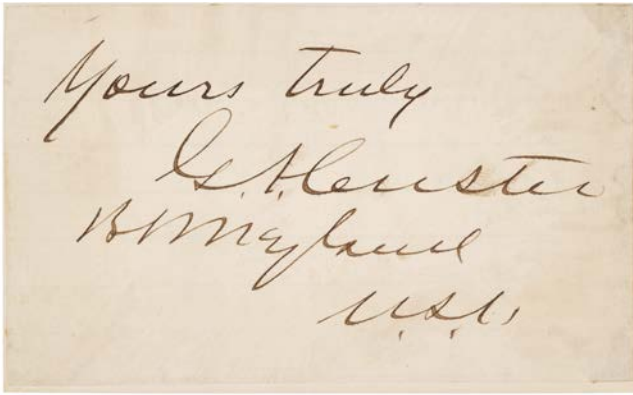 Yours truly
G. A. Custer
Bvt Maj Genl
U.S.A.